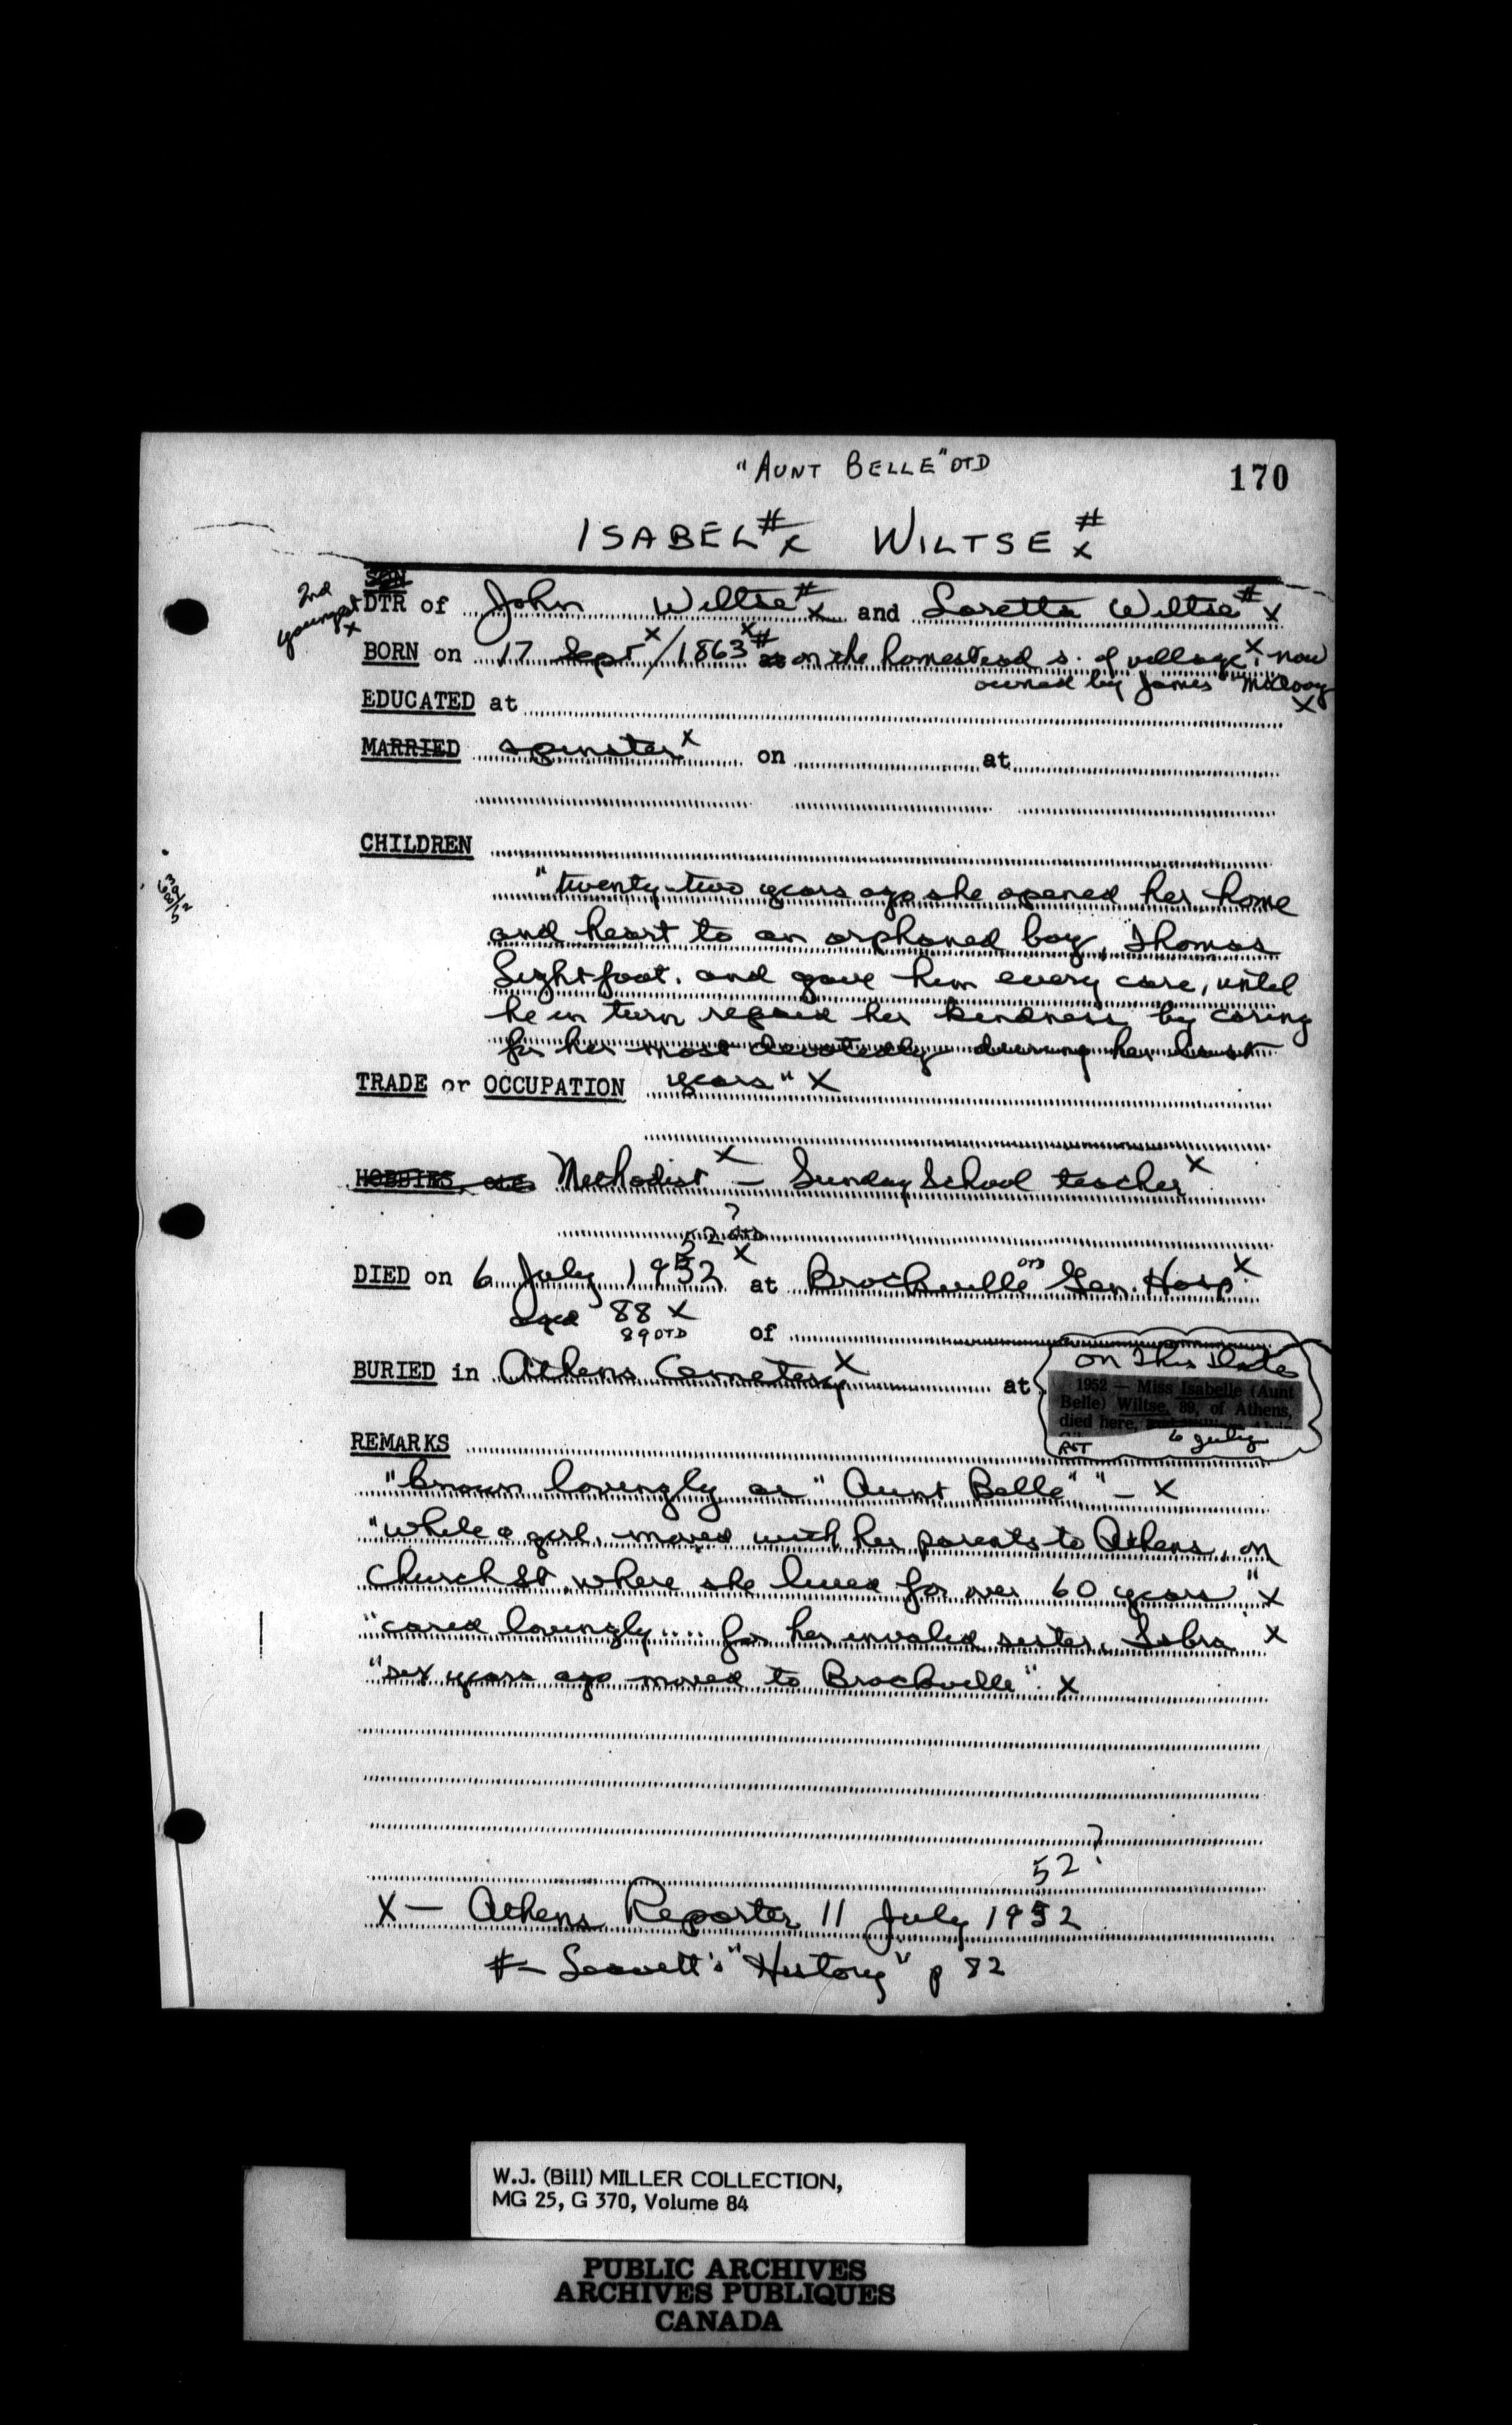 "AUNT BELLE" OTD
170
ISABEL # x WILTSE # x
2nd youngest x
SON
DTR of John Wiltse # x and Loretta Wiltse # x
BORN on 17 Sept x / 1863 x # at on the homestead s. of village x, now
owned by James x
EDUCATED at
MARRIED spinster x on at
CHILDREN
"twenty-two years ago she opened her home
and heart to an orphaned boy, Thomas
Lightfoot, and gave him every care, until
he in turn repaid her kindness by caring
for her most devotedly during her last
TRADE or OCCUPATION years" X
HOBBIES, etc Methodist x – Sunday School teacher x
52 OTD ?
DIED on 6 July 1952 x at Brockville OTD Gen. Hosp. x
aged 88 x
89 OTD of
BURIED in Athens Cemetery x at
On This Date
1952 — Miss Isabelle (Aunt
Belle) Wiltse, 89, of Athens,
died here,
R&T 6 July
REMARKS
"known lovingly as "Aunt Belle" " – X
"while a girl, moved with her parents to Athens, on
Church St where she lived for over 60 years" X
"cared lovingly.... for her invalid sister, X
"six years ago moved to Brockville". X
52?
X — Athens Reporter 11 July 1952
# — "History" p 82
W.J. (Bill) MILLER COLLECTION,
MG 25, G 370, Volume 84
PUBLIC ARCHIVES
ARCHIVES PUBLIQUES
CANADA